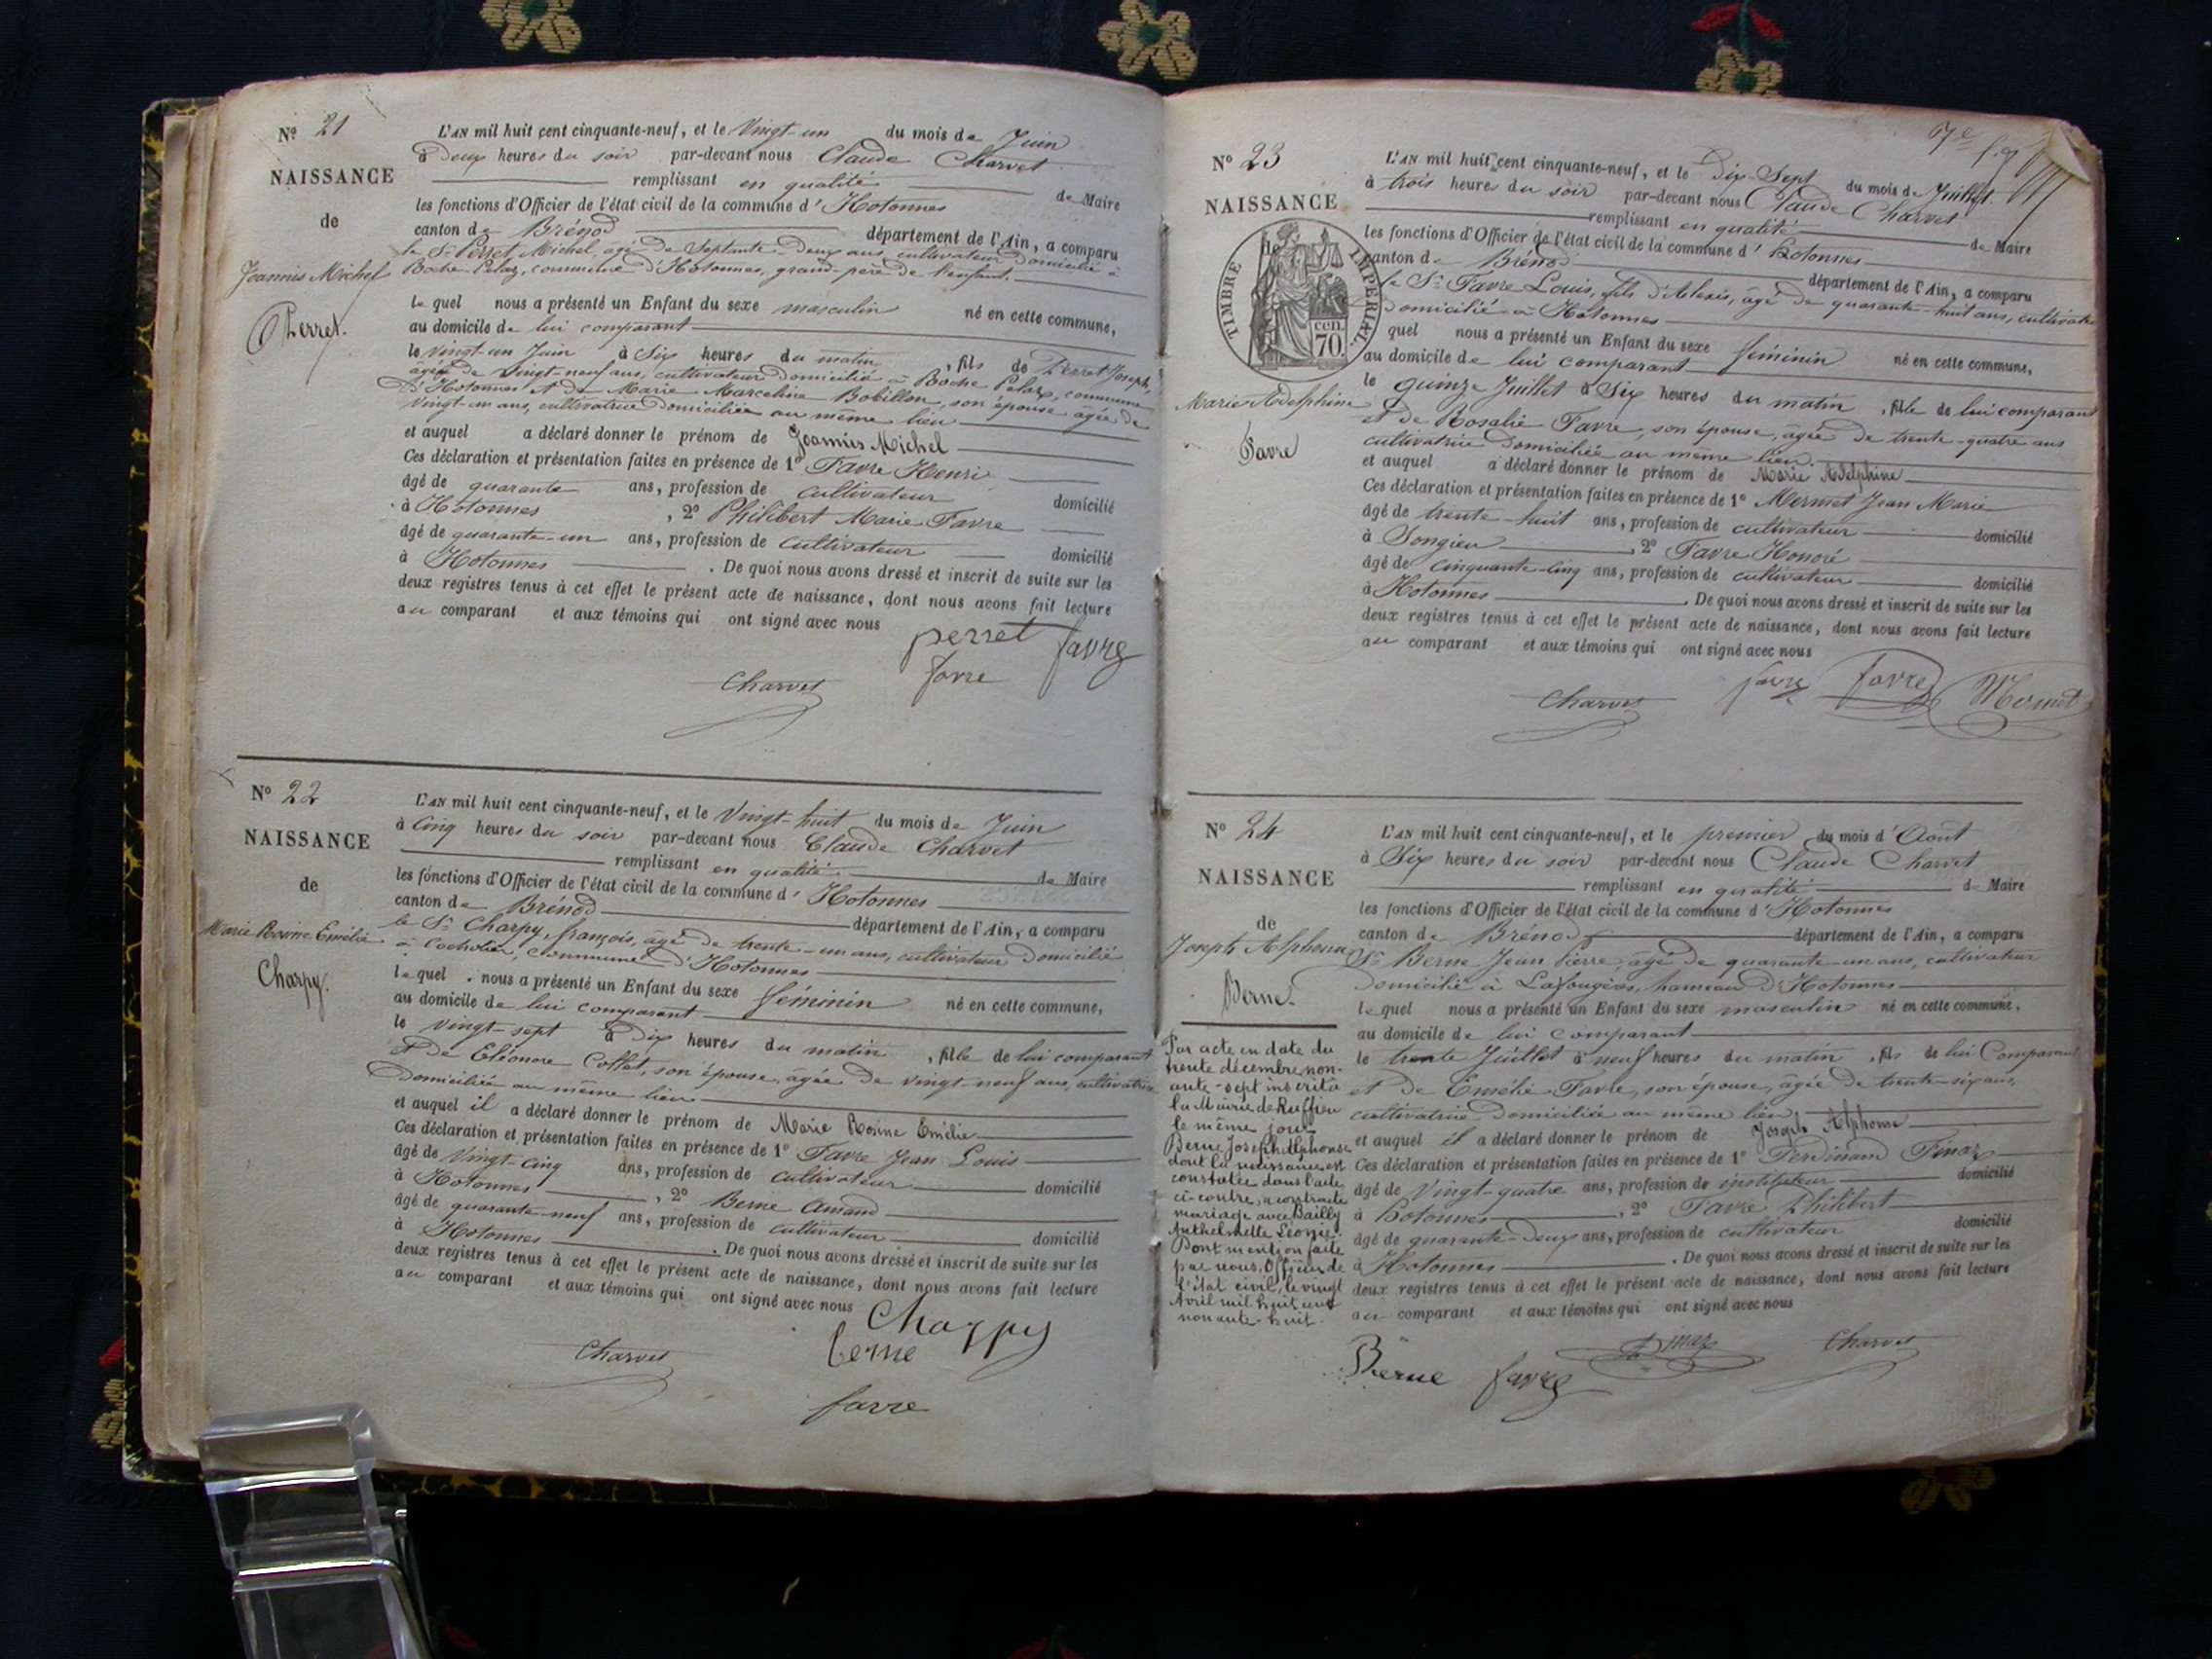 Nº 21
NAISSANCE
de
Joannis Michel
Perret.
L'AN mil huit cent cinquante-neuf, et le Vingt-un du mois de Juin
à Deux heures du soir par-devant nous Claude Charvet
remplissant en qualité de Maire
les fonctions d'Officier de l'état civil de la commune d'Hotonnes
canton de Brénod département de l'Ain, a comparu
le Sr Perret, Michel, agé de Septante-Deux ans, cultivateur Domicilié à
Roche Pelaz, commune d'Hotonnes, grand-père de l'enfant.
lequel nous a présenté un Enfant du sexe masculin né en cette commune,
au domicile de lui comparant
le vingt-un Juin à Six heures du matin, fils de Perret Joseph,
âgé de Vingt-neuf ans, cultivateur Domicilié à Roche Pelaz, commune
d'Hotonnes et de Marie Marceline Bobillon, son épouse âgée de
Vingt-un ans, cultivatrice Domiciliée au même lieu
et auquel a déclaré donner le prénom de Joannis Michel
Ces déclaration et présentation faites en présence de 1º Favre Henri
âgé de quarante ans, profession de cultivateur domicilié
à Hotonnes, 2º Philibert Marie Favre
âgé de quarante-un ans, profession de cultivateur domicilié
à Hotonnes. De quoi nous avons dressé et inscrit de suite sur les
deux registres tenus à cet effet le présent acte de naissance, dont nous avons fait lecture
au comparant et aux témoins qui ont signé avec nous
perret favre
Charvet favre
Nº 22
NAISSANCE
de
Marie Rosine Emélie
Charpy.
L'AN mil huit cent cinquante-neuf, et le Vingt-huit du mois de Juin
à Cinq heures du soir par-devant nous Claude Charvet
remplissant en qualité de Maire
les fonctions d'Officier de l'état civil de la commune d'Hotonnes
canton de Brénod département de l'Ain, a comparu
le Sr Charpy, françois, âgé de trente-un ans, cultivateur Domicilié
à commune d'Hotonnes
lequel nous a présenté un Enfant du sexe féminin né en cette commune,
au domicile de lui comparant
le vingt-sept à Dix heures du matin, fille de lui comparant
et de Eléonore Collet, son épouse, âgée de vingt-neuf ans, cultivatrice
Domiciliée au même lieu
et auquel il a déclaré donner le prénom de Marie Rosine Emélie
Ces déclaration et présentation faites en présence de 1º Favre Jean Louis
âgé de Vingt-cinq ans, profession de cultivateur domicilié
à Hotonnes, 2º Berne Amand
âgé de quarante-neuf ans, profession de cultivateur domicilié
à Hotonnes. De quoi nous avons dressé et inscrit de suite sur les
deux registres tenus à cet effet le présent acte de naissance, dont nous avons fait lecture
au comparant et aux témoins qui ont signé avec nous
Charpy
Charvet berne
favre
7e
Nº 23
NAISSANCE
de
TIMBRE IMPÉRIAL
70 cen.
Marie Adelphine
Favre
L'AN mil huit cent cinquante-neuf, et le Dix-Sept du mois de Juillet
à trois heures du soir par-devant nous Claude Charvet
remplissant en qualité de Maire
les fonctions d'Officier de l'état civil de la commune d'Hotonnes
canton de Brénod département de l'Ain, a comparu
le Sr Favre Louis, fils d'Alexis, âgé de quarante-huit ans, cultivateur
Domicilié à Hotonnes
quel nous a présenté un Enfant du sexe féminin né en cette commune,
au domicile de lui comparant
le quinze Juillet à Six heures du matin, fille de lui comparant
et de Rosalie Favre, son épouse, âgée de trente-quatre ans
cultivatrice Domiciliée au même lieu.
et auquel a déclaré donner le prénom de Marie Adelphine
Ces déclaration et présentation faites en présence de 1º Mermet Jean Marie
âgé de trente-huit ans, profession de cultivateur domicilié
à Songieu, 2º Favre Honoré
âgé de cinquante-cinq ans, profession de cultivateur domicilié
à Hotonnes. De quoi nous avons dressé et inscrit de suite sur les
deux registres tenus à cet effet le présent acte de naissance, dont nous avons fait lecture
au comparant et aux témoins qui ont signé avec nous
Charvet favre favre Mermet
Nº 24
NAISSANCE
de
Joseph Alphonse
Berne.
L'AN mil huit cent cinquante-neuf, et le premier du mois d'Aout
à Six heures du soir par-devant nous Claude Charvet
remplissant en qualité de Maire
les fonctions d'Officier de l'état civil de la commune d'Hotonnes
canton de Brénod département de l'Ain, a comparu
Sr Berne Jean Pierre, âgé de quarante-un ans, cultivateur
Domicilié à hameau d'Hotonnes
lequel nous a présenté un Enfant du sexe masculin né en cette commune,
au domicile de lui comparant
le trente Juillet à neuf heures du matin, fils de lui Comparant
et de Emélie Favre, son épouse, âgée de trente-six ans,
cultivatrice Domiciliée au même lieu
et auquel il a déclaré donner le prénom de Joseph Alphonse
Ces déclaration et présentation faites en présence de 1º Ferdinand Pinaz
âgé de Vingt-quatre ans, profession de instituteur domicilié
à Hotonnes, 2º Favre Philibert
âgé de quarante-deux ans, profession de cultivateur domicilié
à Hotonnes. De quoi nous avons dressé et inscrit de suite sur les
deux registres tenus à cet effet le présent acte de naissance, dont nous avons fait lecture
au comparant et aux témoins qui ont signé avec nous
Berne favre Pinaz Charvet
Par acte en date du
trente décembre non-
ante-sept inscrit à
la Mairie de Ruffieu
le même jour
Berne Joseph Alphonse
dont la naissance est
constatée dans l'acte
ci-contre, a contracté
mariage avec Bailly
Anthelmette Léonie.
Dont mention faite
par nous, Officier de
l'état civil, le vingt
Avril mil huit cent
nonante-huit.